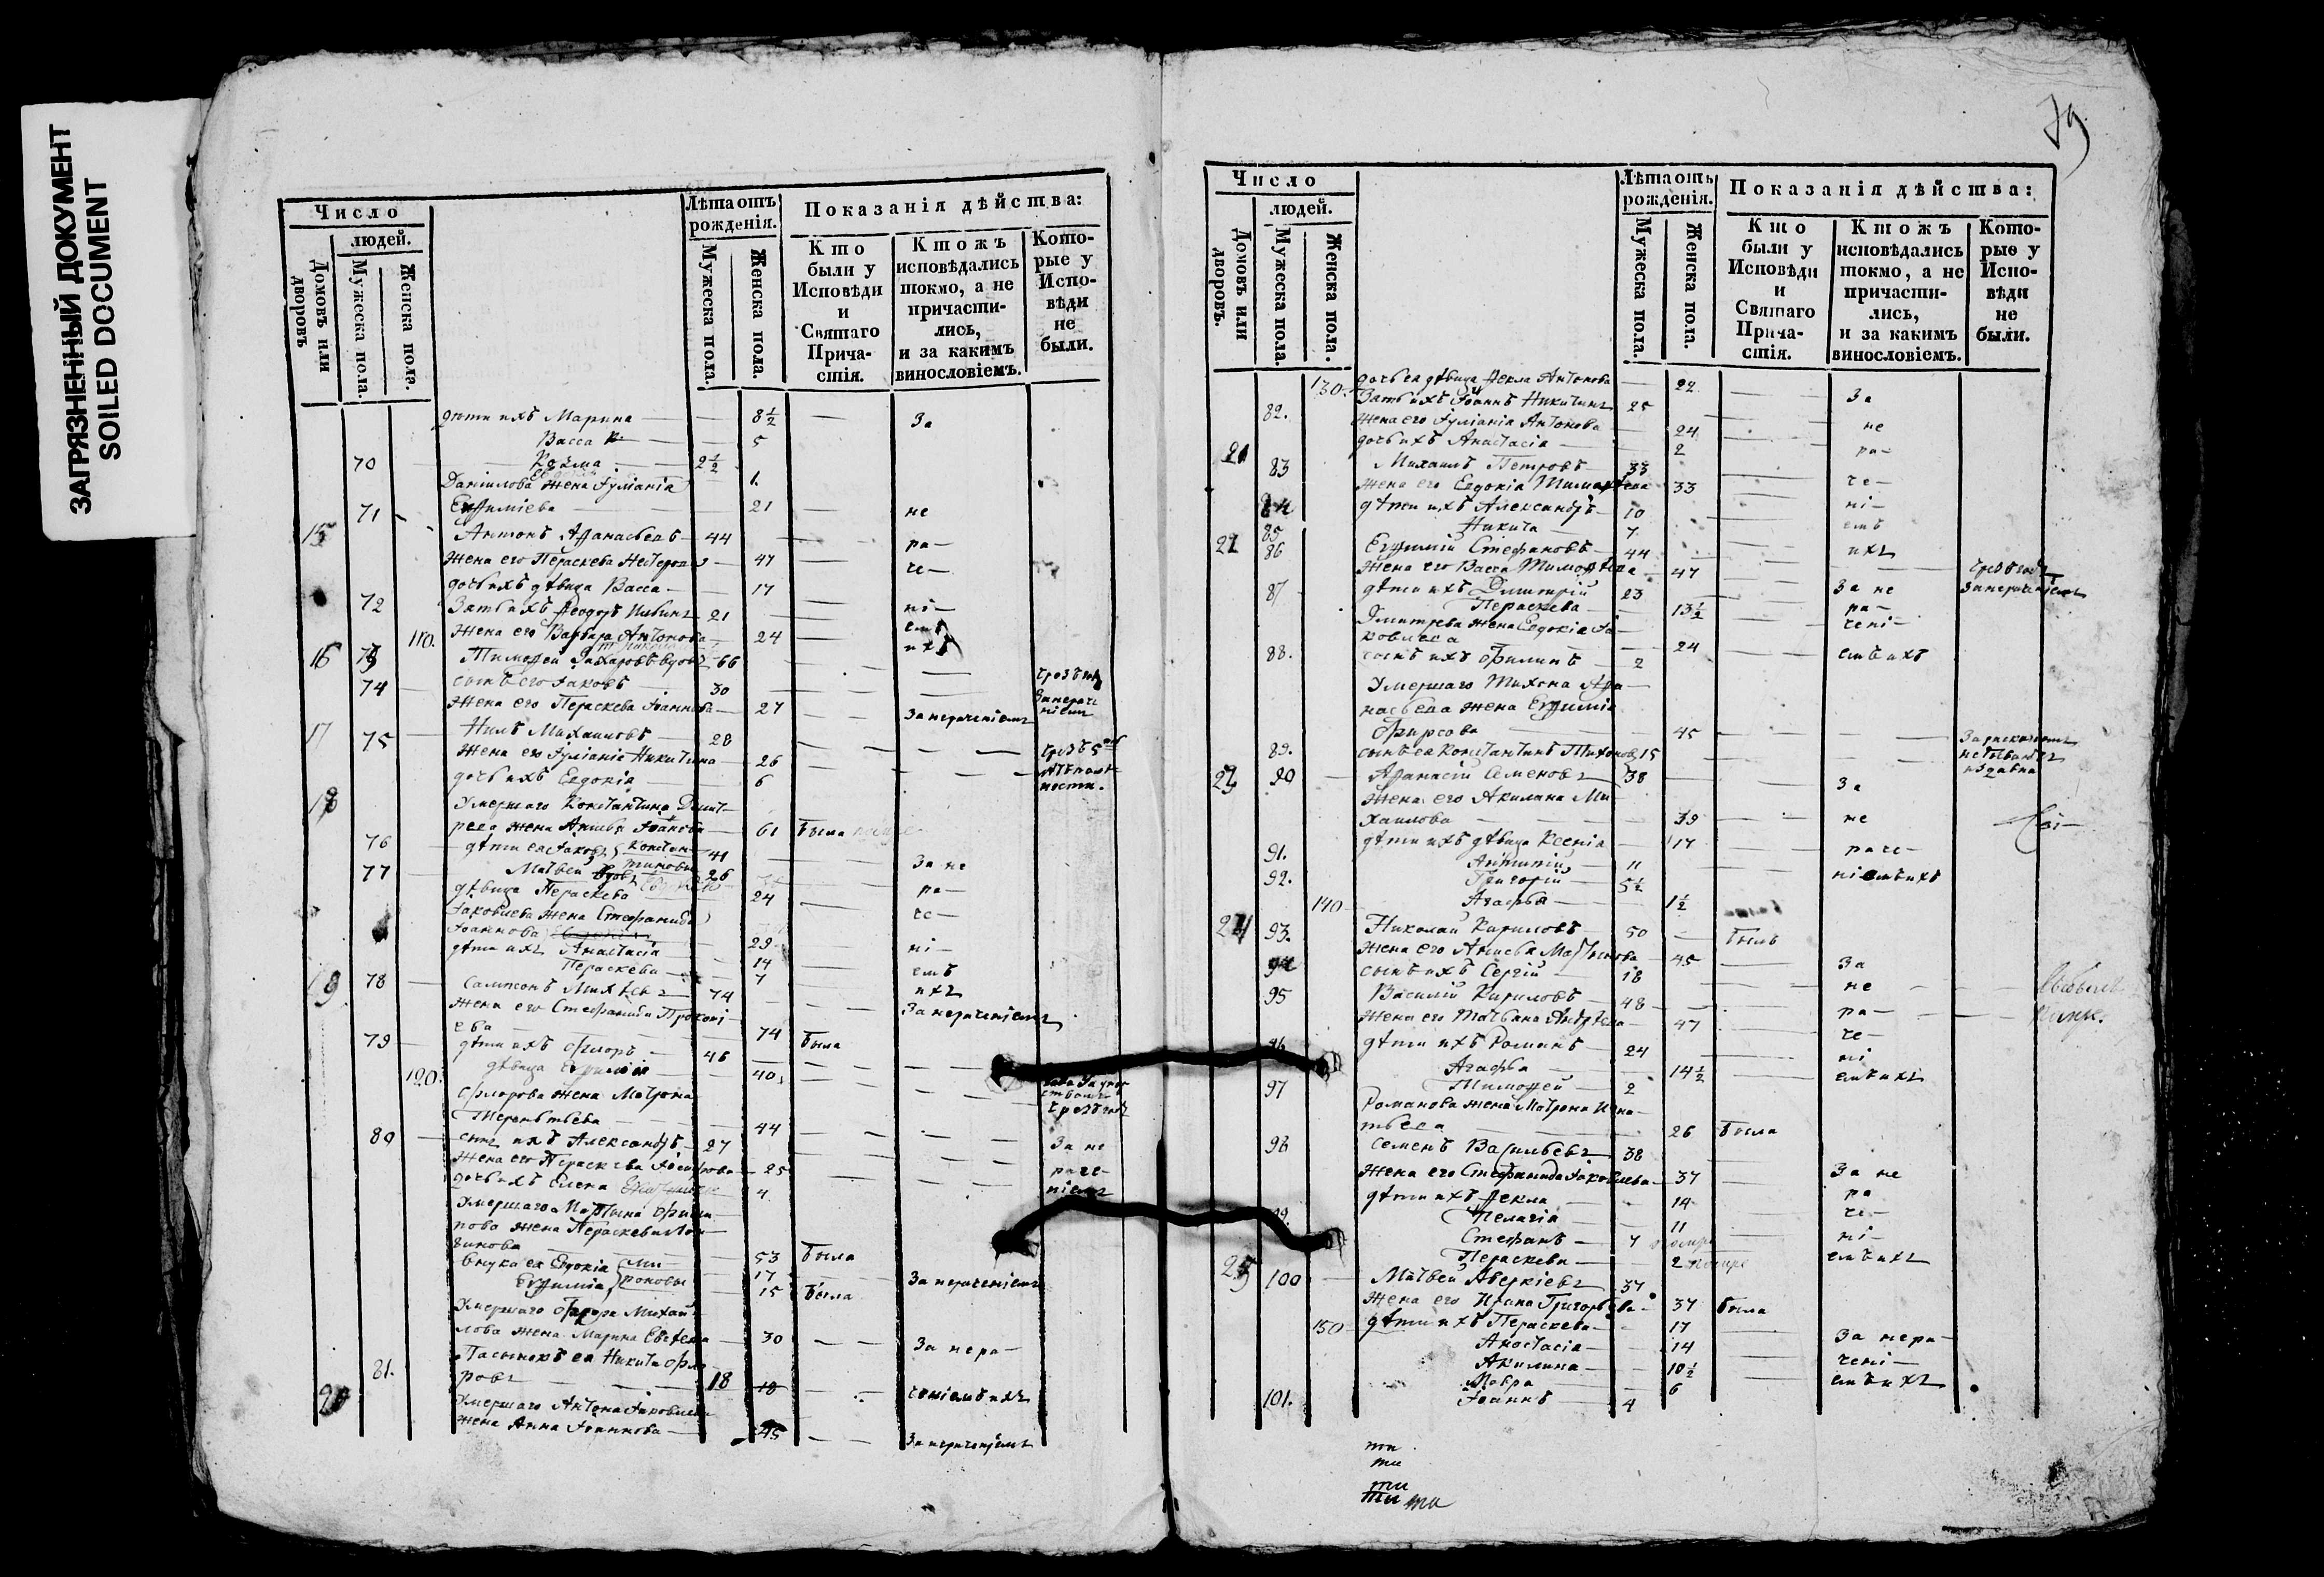 ЗАГРЯЗНЕННЫЙ ДОКУМЕНТ
SOILED DOCUMENT
Число
людей.
Домовъ или дворовъ
Мужеска пола.
Женска пола.
Лѣта отъ рожденія.
Мужеска пола.
Женска пола.
Показанія дѣйства:
Кто были у Исповѣди и Святаго Причастія.
Ктожъ исповѣдались токмо, а не причастились, и за какимъ винословіемъ.
Которые у Исповѣди не были.
дѣти ихъ Марина 8½ За
Васса 5
70 Козма 2½
Даніилова жена Іуліанія 1.
71 Евфиміева 21 не
15 Антонъ Афанасьевъ 44 ра-
жена его Параскева Нестерова 47 че-
дочь ихъ дѣвица Васса 17
72 Зять ихъ Ѳеодоръ Ильинъ 21 ні-
110. жена его Варвара Антонова 24 емъ ихъ
16 73 Тимоѳей Захаровъ вдовъ 66
74 сынъ его Іаковъ 30
жена его Параскева Іоаннова 27 За нераченіемъ
17 75 Нилъ Михаиловъ 28
жена его Іуліанія Никитина 26
дочь ихъ Евдокія 6
18 Умершаго Константина Дмит-
ріева жена Анисья Іоаннова 61 была
76 дѣти ея Іаковъ Констан- 41
77 Матвей тиновы 26 За не
дѣвица Параскева 24 ра-
Іаковлева жена Стефанида че-
Іоаннова 29
дѣти ихъ Анастасія 14 ні-
Параскева 7 емъ
19 78 Сампсонъ Михѣевъ 74 ихъ
жена его Стефанида Прокопі- За нераченіемъ
ева 74 была
79 дѣти ихъ Флоръ 46
120. дѣвица Евфимія 40
Флорова жена Матрона
Терентьева 44
80 сынъ ихъ Александръ 27 За не
жена его Параскева 25 раче-
дочь ихъ Елена 4 ніемъ
Умершаго Мартына Филип-
пова жена Параскева
53 была
внука ея Евдокія 17 За нераченіемъ
Евфимія 15 была
Умершаго Ѳедора Михай-
лова жена Марина Евсѣева 30 За нера-
81. Пасынокъ ея Никита Фло-
ровъ 18 18 ченіемъ ихъ
20 Умершаго Антона Іаковлева
жена Анна Іоаннова 45 За нераченіемъ
79
Число
людей.
Домовъ или дворовъ.
Мужеска пола.
Женска пола.
Лѣта отъ рожденія.
Мужеска пола.
Женска пола.
Показанія дѣйства:
Кто были у Исповѣди и Святаго Причастія.
Ктожъ исповѣдались токмо, а не причастились, и за какимъ винословіемъ.
Которые у Исповѣди не были.
130. дочь ея дѣвица Ѳекла Антонова 22
82. Зять ихъ Іоаннъ Никитинъ 25 За
жена его Іуліанія Антонова 24 не
дочь ихъ Анастасія 2 ра-
21 83 Михаилъ Петровъ 33
жена его Евдокія 33 че-
84 дѣти ихъ Александръ 10 ні-
85 Никита 7 емъ
22 86 Евфимій Стефановъ 44 ихъ
жена его Васса Тимоѳеева 47
87 дѣти ихъ Димитрій 23 За не За нераченіемъ
Параскева 13½ ра-
Дмитрева жена Евдокія Іа- чені-
ковлева 24
88. сынъ ихъ Филипъ 2 емъ ихъ
Умершаго Тихона Афа-
насьева жена Евфимія
Фирсова 45
89. сынъ ея Константинъ Тихоновъ 15
23 90 Афанасій Семеновъ 38
жена его Акилина Ми- За
хаилова 39 не
дѣти ихъ дѣвица Ксенія 17
91. Антипій 11 раче-
92. Григорій 5½ ніемъ ихъ
140 Агафья 1½
24 93. Николай Кириловъ 50 былъ
жена его Анисья Мартынова 45 За
94 сынъ ихъ Сергій 18 не
95 Василій Кириловъ 48 ра-
жена его Татьяна Андреева 47 че-
96 дѣти ихъ Романъ 24 ні
Агафья 14½ емъ ихъ
97 Тимоѳей 2
Романова жена Матрона Игна-
тьева 26 была
98 Семенъ Васильевъ 38
жена его Стефанида Іаковлева 37 За не
дѣти ихъ Ѳекла 14 ра
Пелагія 11 че-
99. Стефанъ 7 ні-
Параскева 2 емъ ихъ
25 100 Матвей Аверкіевъ 37
жена его Ирина Григорьева 37 была
150 дѣти ихъ Параскева 17
Анастасія 14 За нера-
Акилина 10½ чені-
Мавра 6 емъ ихъ
101. Іоаннъ 4